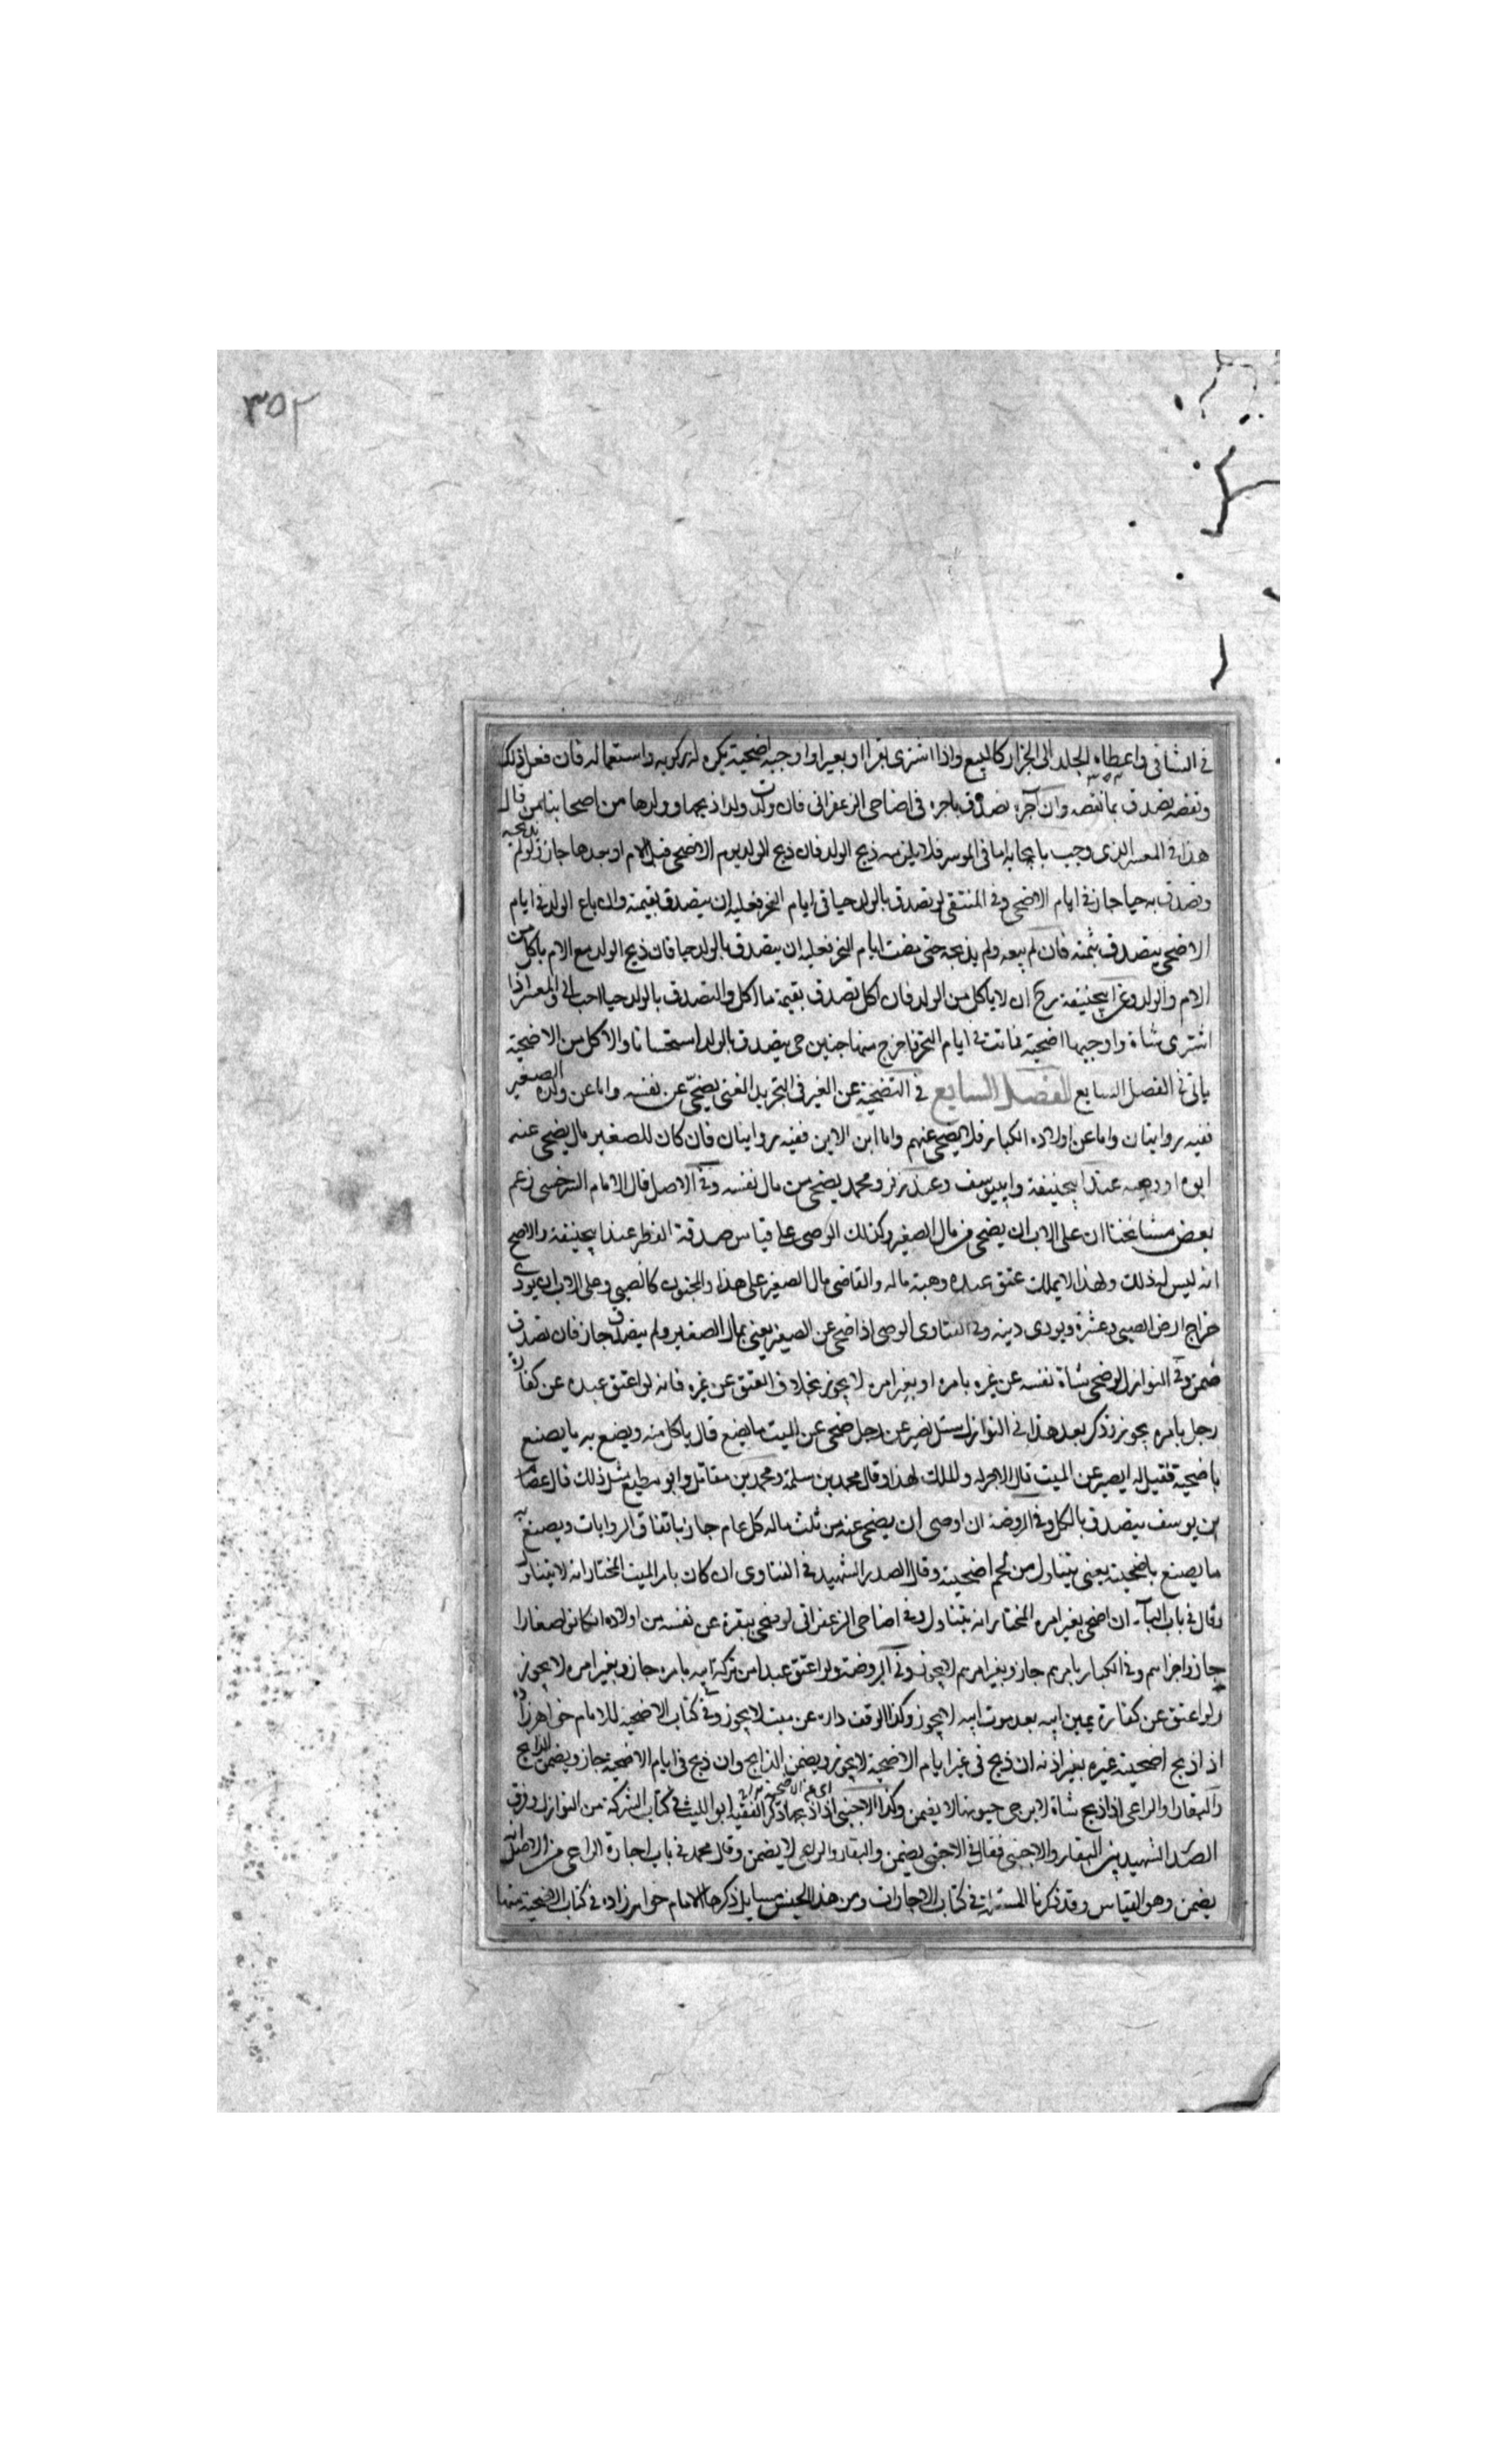 ٣٥٢
في الشافي واعطاء الجلد الى الجزار كالبيع واذا اشترى بقرا او بعيرا واوجبه اضحية يكره له ركوبه واستعماله فان فعل ذلك
ونقصه تصدق بما نقصه وان آجره تصدق باجره في اضاحي الزعفراني فان ولدت ولدا ذبحها وولدها من اصحابنا من قال
هذا في المعسر الذي وجب بايجابه اما في الموسر فلا يلزمه ذبح الولد فان ذبح الولد يوم الاضحى قبل الام او بعدها جاز ولو لم يذبحه
وتصدق به حيا جاز في ايام الاضحى وفي المنتقى لو تصدق بالولد حيا في ايام النحر فعليه ان يتصدق بقيمته وان باع الولد في ايام
الاضحى يتصدق بثمنه فان لم يبعه ولم يذبحه حتى مضت ايام النحر فعليه ان يتصدق بالولد حيا فان ذبح الولد مع الام ياكل من
الام والولد وعن ابيحنيفة رح ان لا ياكل من الولد فان اكل تصدق بقيمة ما اكل والتصدق بالولد حيا احب الي والمعسر اذا
اشترى شاة واوجبها اضحية فماتت في ايام النحر فاخرج منها جنين حي يتصدق بالولد استحسانا والاكل من الاضحية
ياتي في الفصل السابع الفصل السابع في التضحية عن الغير في التجريد الغني يضحي عن نفسه واما عن ولده الصغير
ففيه روايتان واما عن اولاده الكبار فلا يضحي عنهم واما ابن الابن ففيه روايتان فان كان للصغير مال يضحي عنه
ابوه او وصيه عند ابيحنيفة وابييوسف وعند زفر ومحمد يضحي من مال نفسه وفي الاصل قال الامام السرخسي زعم
بعض مشائخنا ان على الاب ان يضحي من مال الصغير وكذلك الوصي على قياس صدقة الفطر عند ابيحنيفة والاصح
انه ليس له ذلك ولهذا لا يملك عتق عبده وهبة ماله والقاضي مال الصغير على هذا والمجنون كالصبي وعلى الاب ان يؤدي
خراج ارض الصبي وعشره ويودي دينه وفي الفتاوى الوصي اذا ضحى عن الصغير يعني بمال الصغير ولم يتصدق جاز فان تصدق
ضمن وفي النوازل لو ضحى شاة نفسه عن غيره بامره او بغير امره لا يجوز بخلاف العتق عن غيره فانه لو اعتق عبده عن كفارة
رجل بامره يجوز وذكر بعد هذا في النوازل سئل نصير عن رجل ضحى عن الميت ما يصنع قال ياكل منه ويصنع به ما يصنع
باضحيته فقيل له ايصير عن الميت قال الاجر له والملك لهذا وقال محمد بن سلمة ومحمد بن مقاتل وابو مطيع مثل ذلك قال عصام
بن يوسف يتصدق بالكل وفي الروضة ان اوصى ان يضحى عنه من ثلث ماله كل عام جاز باتفاق الروايات ويصنع به
ما يصنع باضحيته يعني يتناول من لحم اضحيته وقال الصدر الشهيد في الفتاوى ان كان بامر الميت المختار انه لا يتناول
وقال في باب الباء ان اضحى بغير امره المختار انه يتناول وفي اضاحي الزعفراني لو ضحى ببقرة عن نفسه من اولاده ان كانوا صغارا
جاز واجزاهم وفي الكبار بامرهم جاز وبغير امرهم لا يجوز وفي الروضة ولو اعتق عبدا من تركة ابيه بامره جاز وبغير امره لا يجوز
ولو اعتق عن كفارة يمين ابيه بعد موت ابيه لا يجوز وكذا لو وقف داره عن ميت لا يجوز وفي كتاب الاضحية للامام خواهرزاده
اذا ذبح اضحية غيره بغير اذنه ان ذبح في غير ايام الاضحية لا يجوز ويضمن الذابح وان ذبح في ايام الاضحية جاز ويضمن الذابح
والبقار والراعي اذا ذبح شاة لا يرجى حيوتها لا يضمن وكذا الاجنبي اذا ذبحها ذكر الفقيه ابو الليث في كتاب الشركة من النوازل وفرق
الصدر الشهيد بين البقار والاجنبي فقال في الاجنبي يضمن والبقار والراعي لا يضمن وقال محمد في باب اجارة الراعي من الاصل انه
يضمن وهو القياس وقد ذكرنا المسئلة في كتاب الاجارات ومن هذا الجنس مسايل ذكرها الامام خواهرزاده في كتاب الاضحية منها